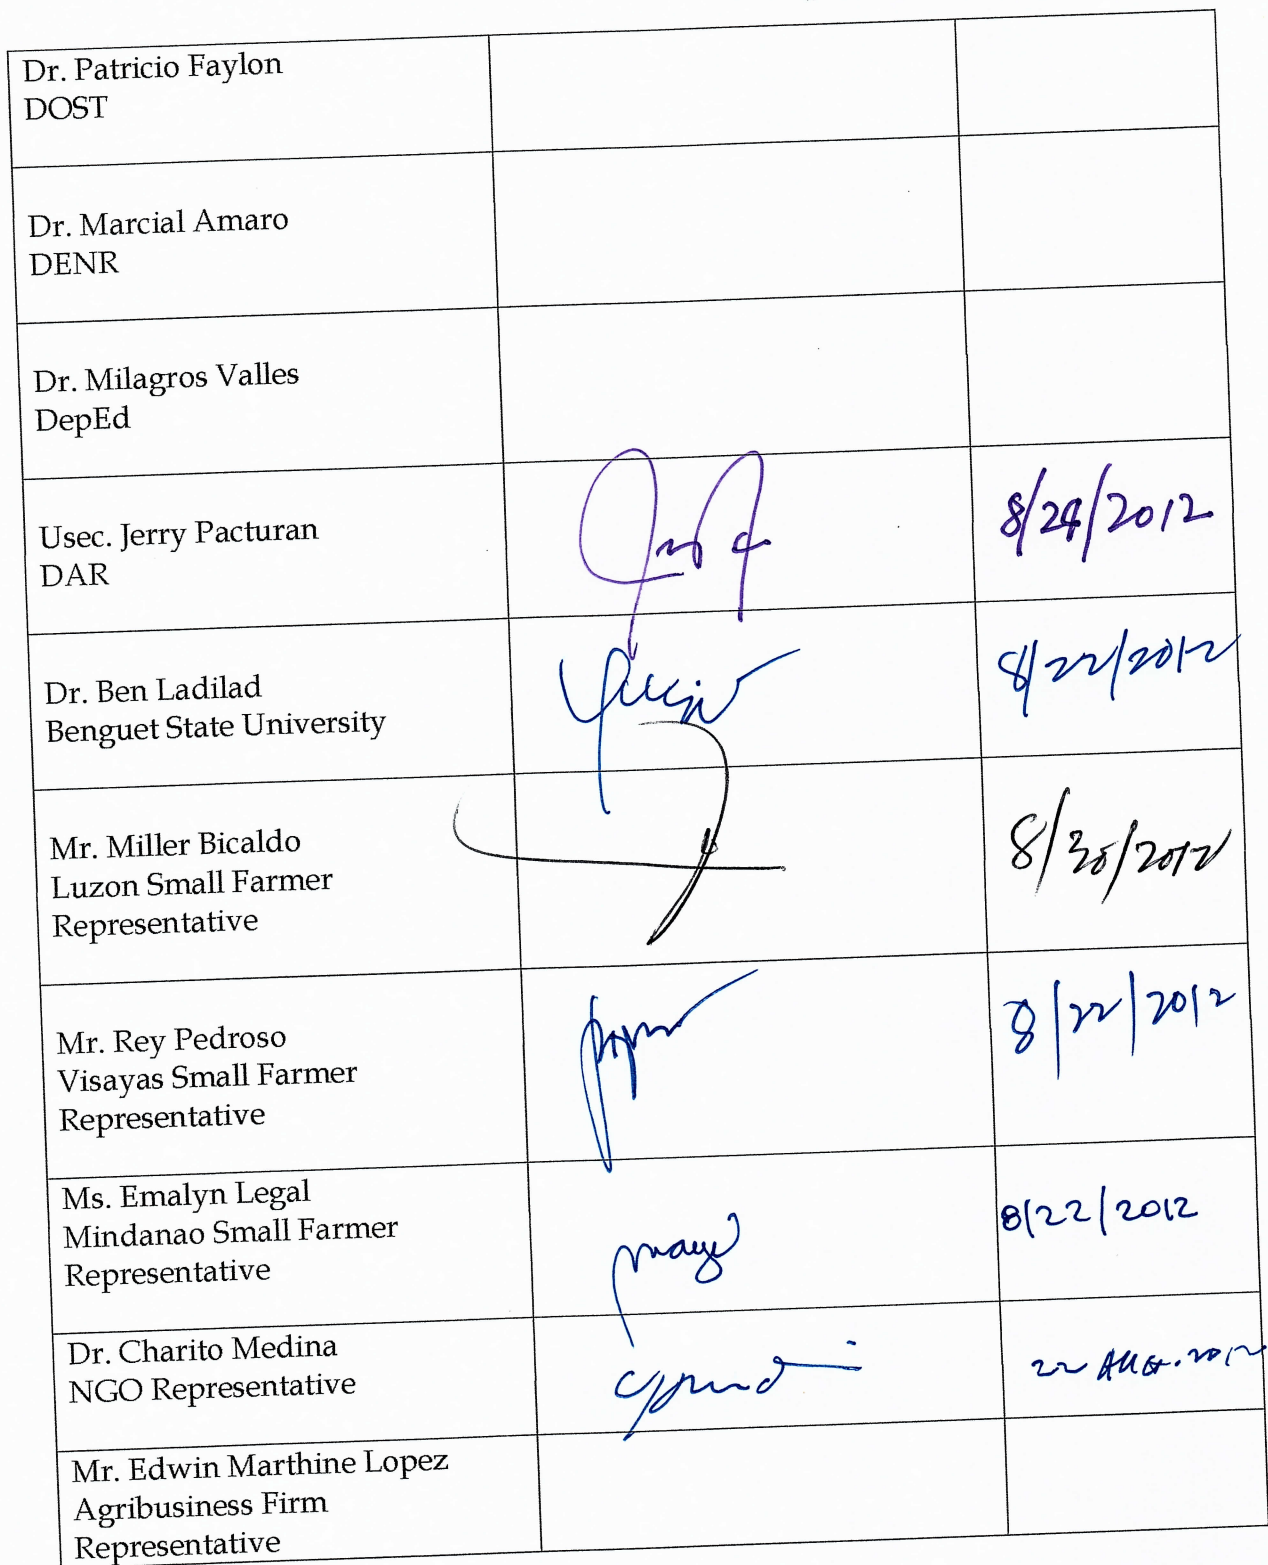 Dr. Patricio Faylon
DOST
Dr. Marcial Amaro
DENR
Dr. Milagros Valles
DepEd
Usec. Jerry Pacturan
DAR
8/24/2012
Dr. Ben Ladilad
Benguet State University
8/22/2012
Mr. Miller Bicaldo
Luzon Small Farmer
Representative
8/30/2012
Mr. Rey Pedroso
Visayas Small Farmer
Representative
8/22/2012
Ms. Emalyn Legal
Mindanao Small Farmer
Representative
8/22/2012
Dr. Charito Medina
NGO Representative
22 AUG. 2012
Mr. Edwin Marthine Lopez
Agribusiness Firm
Representative